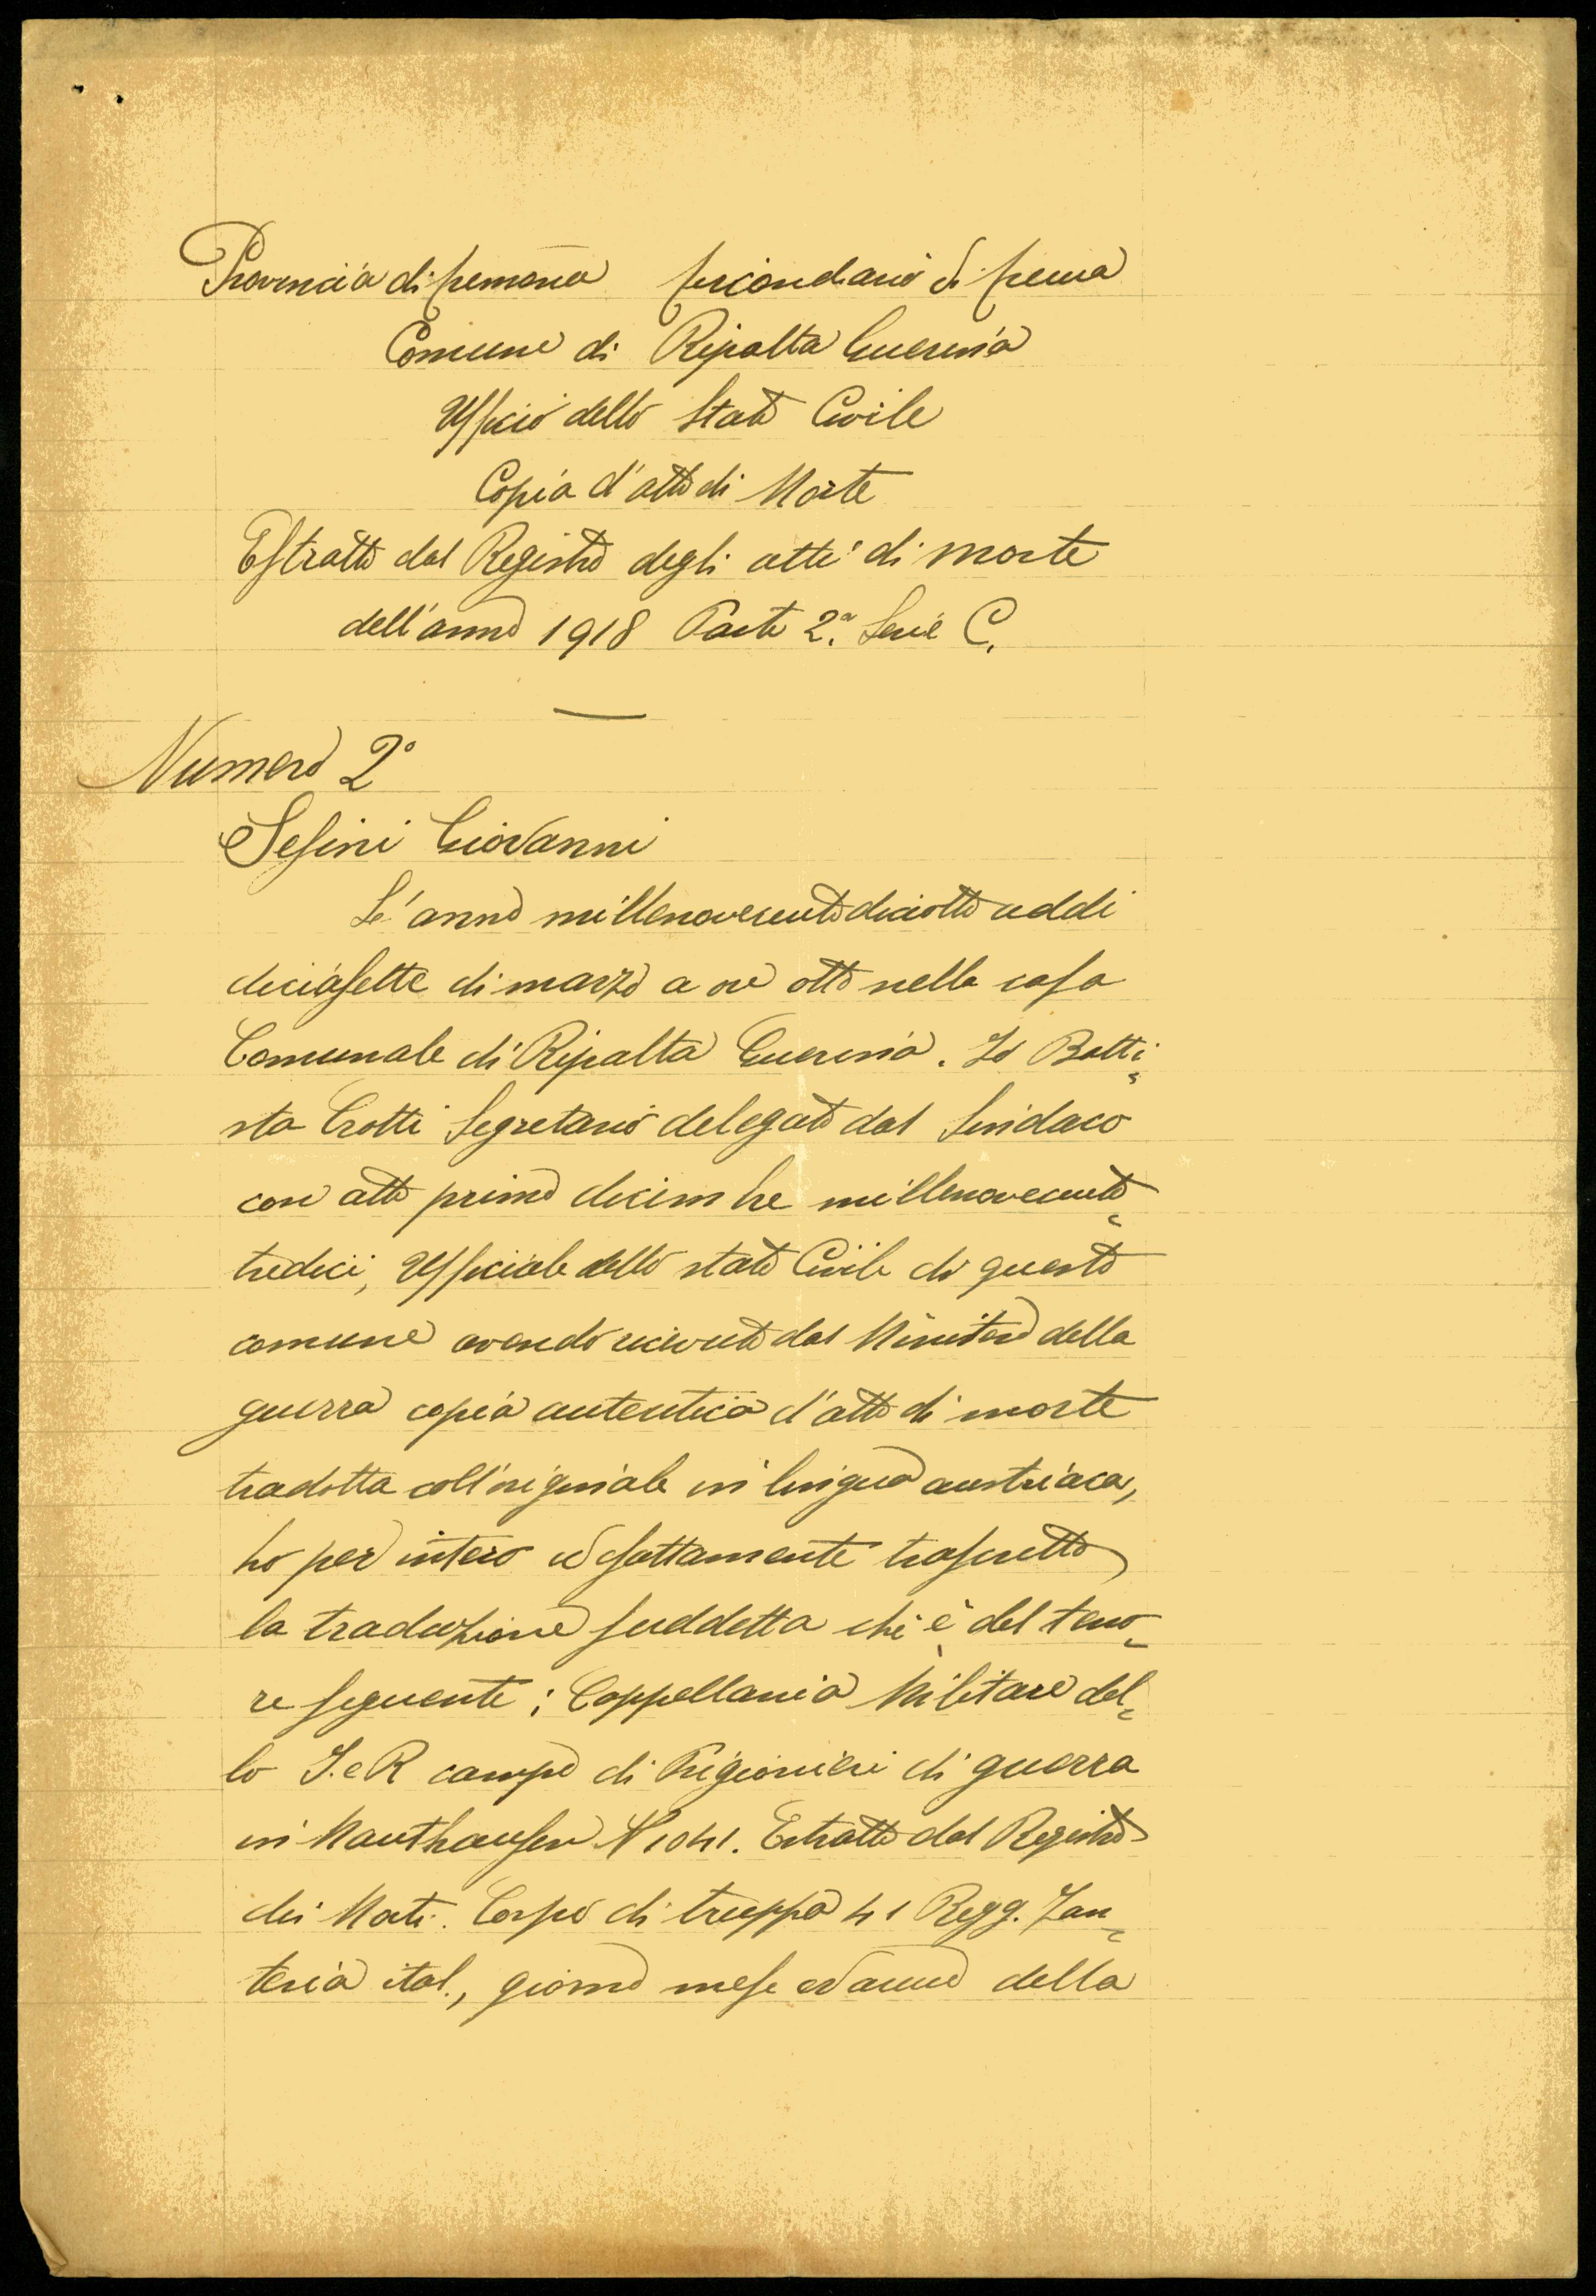 Provincia di Cremona Circondario di Crema
Comune di Ripalta Guerina
Ufficio dello Stato Civile
Copia d'atto di Morte
Estratto dal Registro degli atti di morte
dell'anno 1918 Parte 2.a Serie C.
Numero 2°
Sesini Giovanni
L'anno millenovecentodiciotto addi
diciasette di marzo a ore otto nella casa
Comunale di Ripalta Guerina. Io Batti-
sta Crotti Segretario delegato dal Sindaco
con atto primo dicembre millenovecento-
tredici, Ufficiale dello stato Civile di questo
comune avendo ricevuto dal Ministero della
guerra copia autentica d'atto di morte
tradotta coll'originale in lingua austriaca,
ho per intero ed esattamente trascritto
la traduzione suddetta che è del teno-
re seguente: Cappellania Militare del-
lo I. e R campo di Prigionieri di guerra
in Mauthausen N 1041. Estratto dal Registro
dei Morti. Corpo di truppa 41 Regg. Fan-
teria ital., giorno mese ed anno della